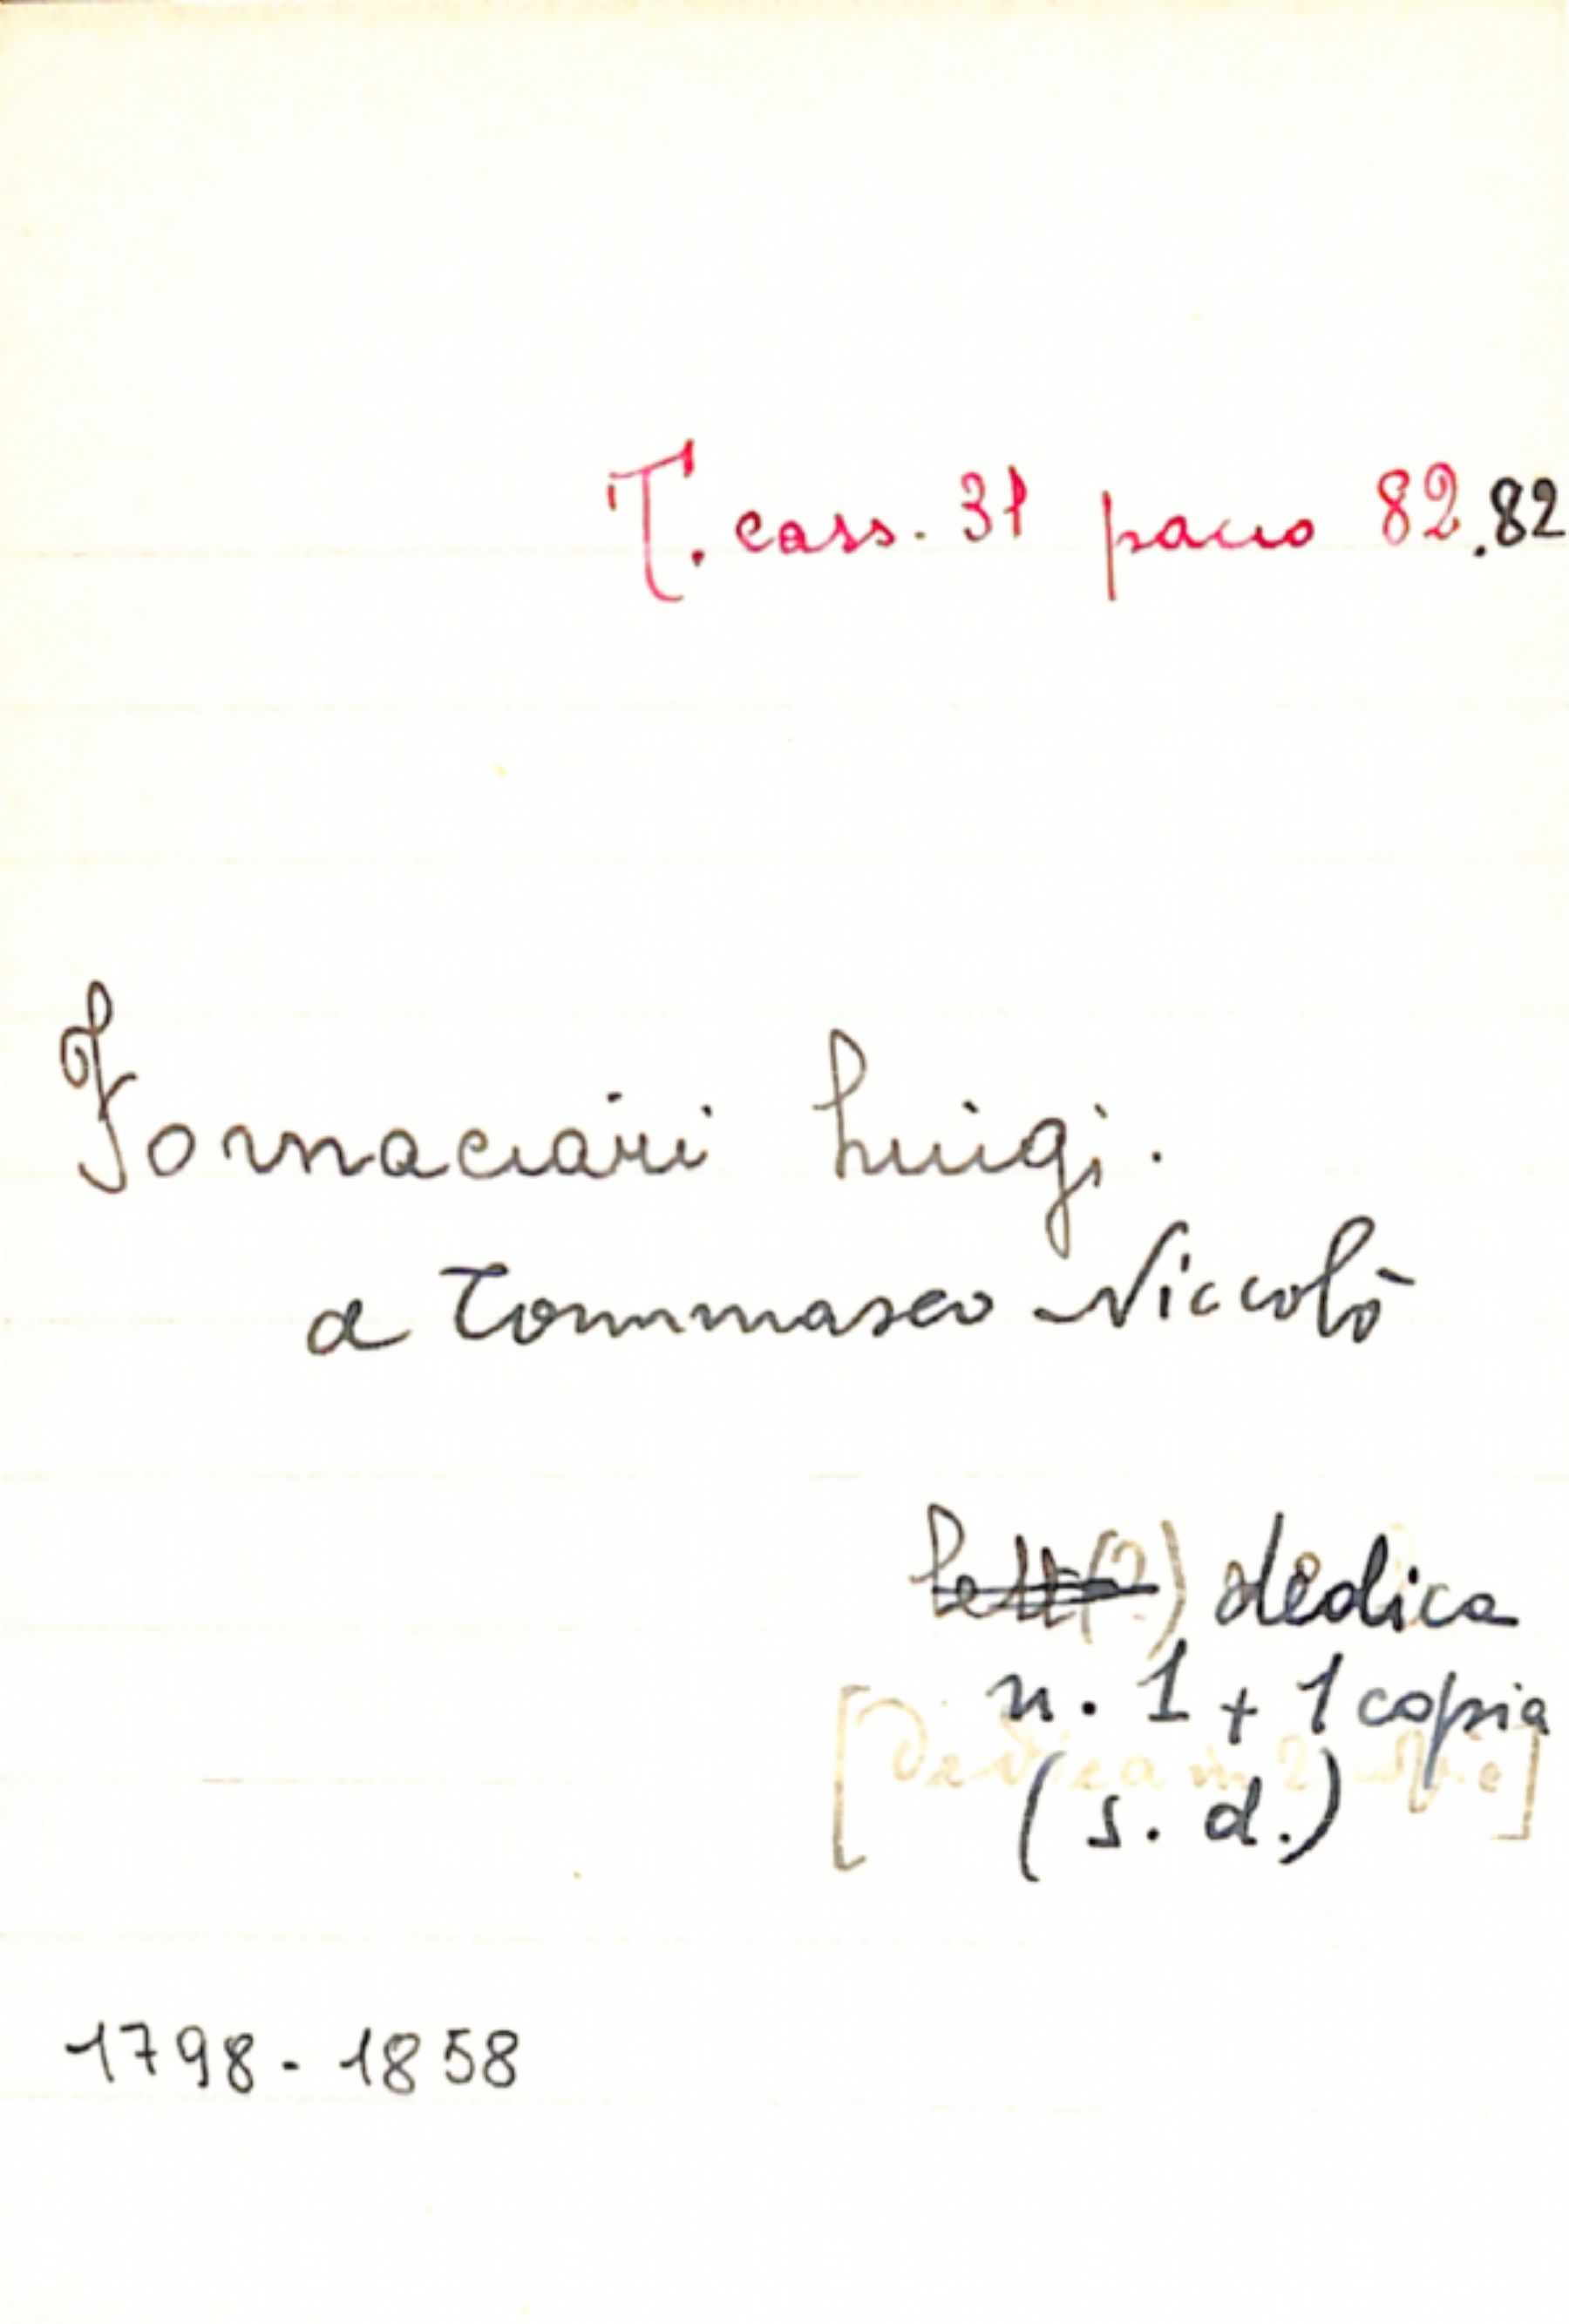 T. cass. 31 pacco 82.82
Fornaciari Luigi.
a Tommaseo Niccolò
Lett(?) dedica
n. 1 + 1 copia
[Dedica in 2 copie]
(s. d.)
1798 - 1858